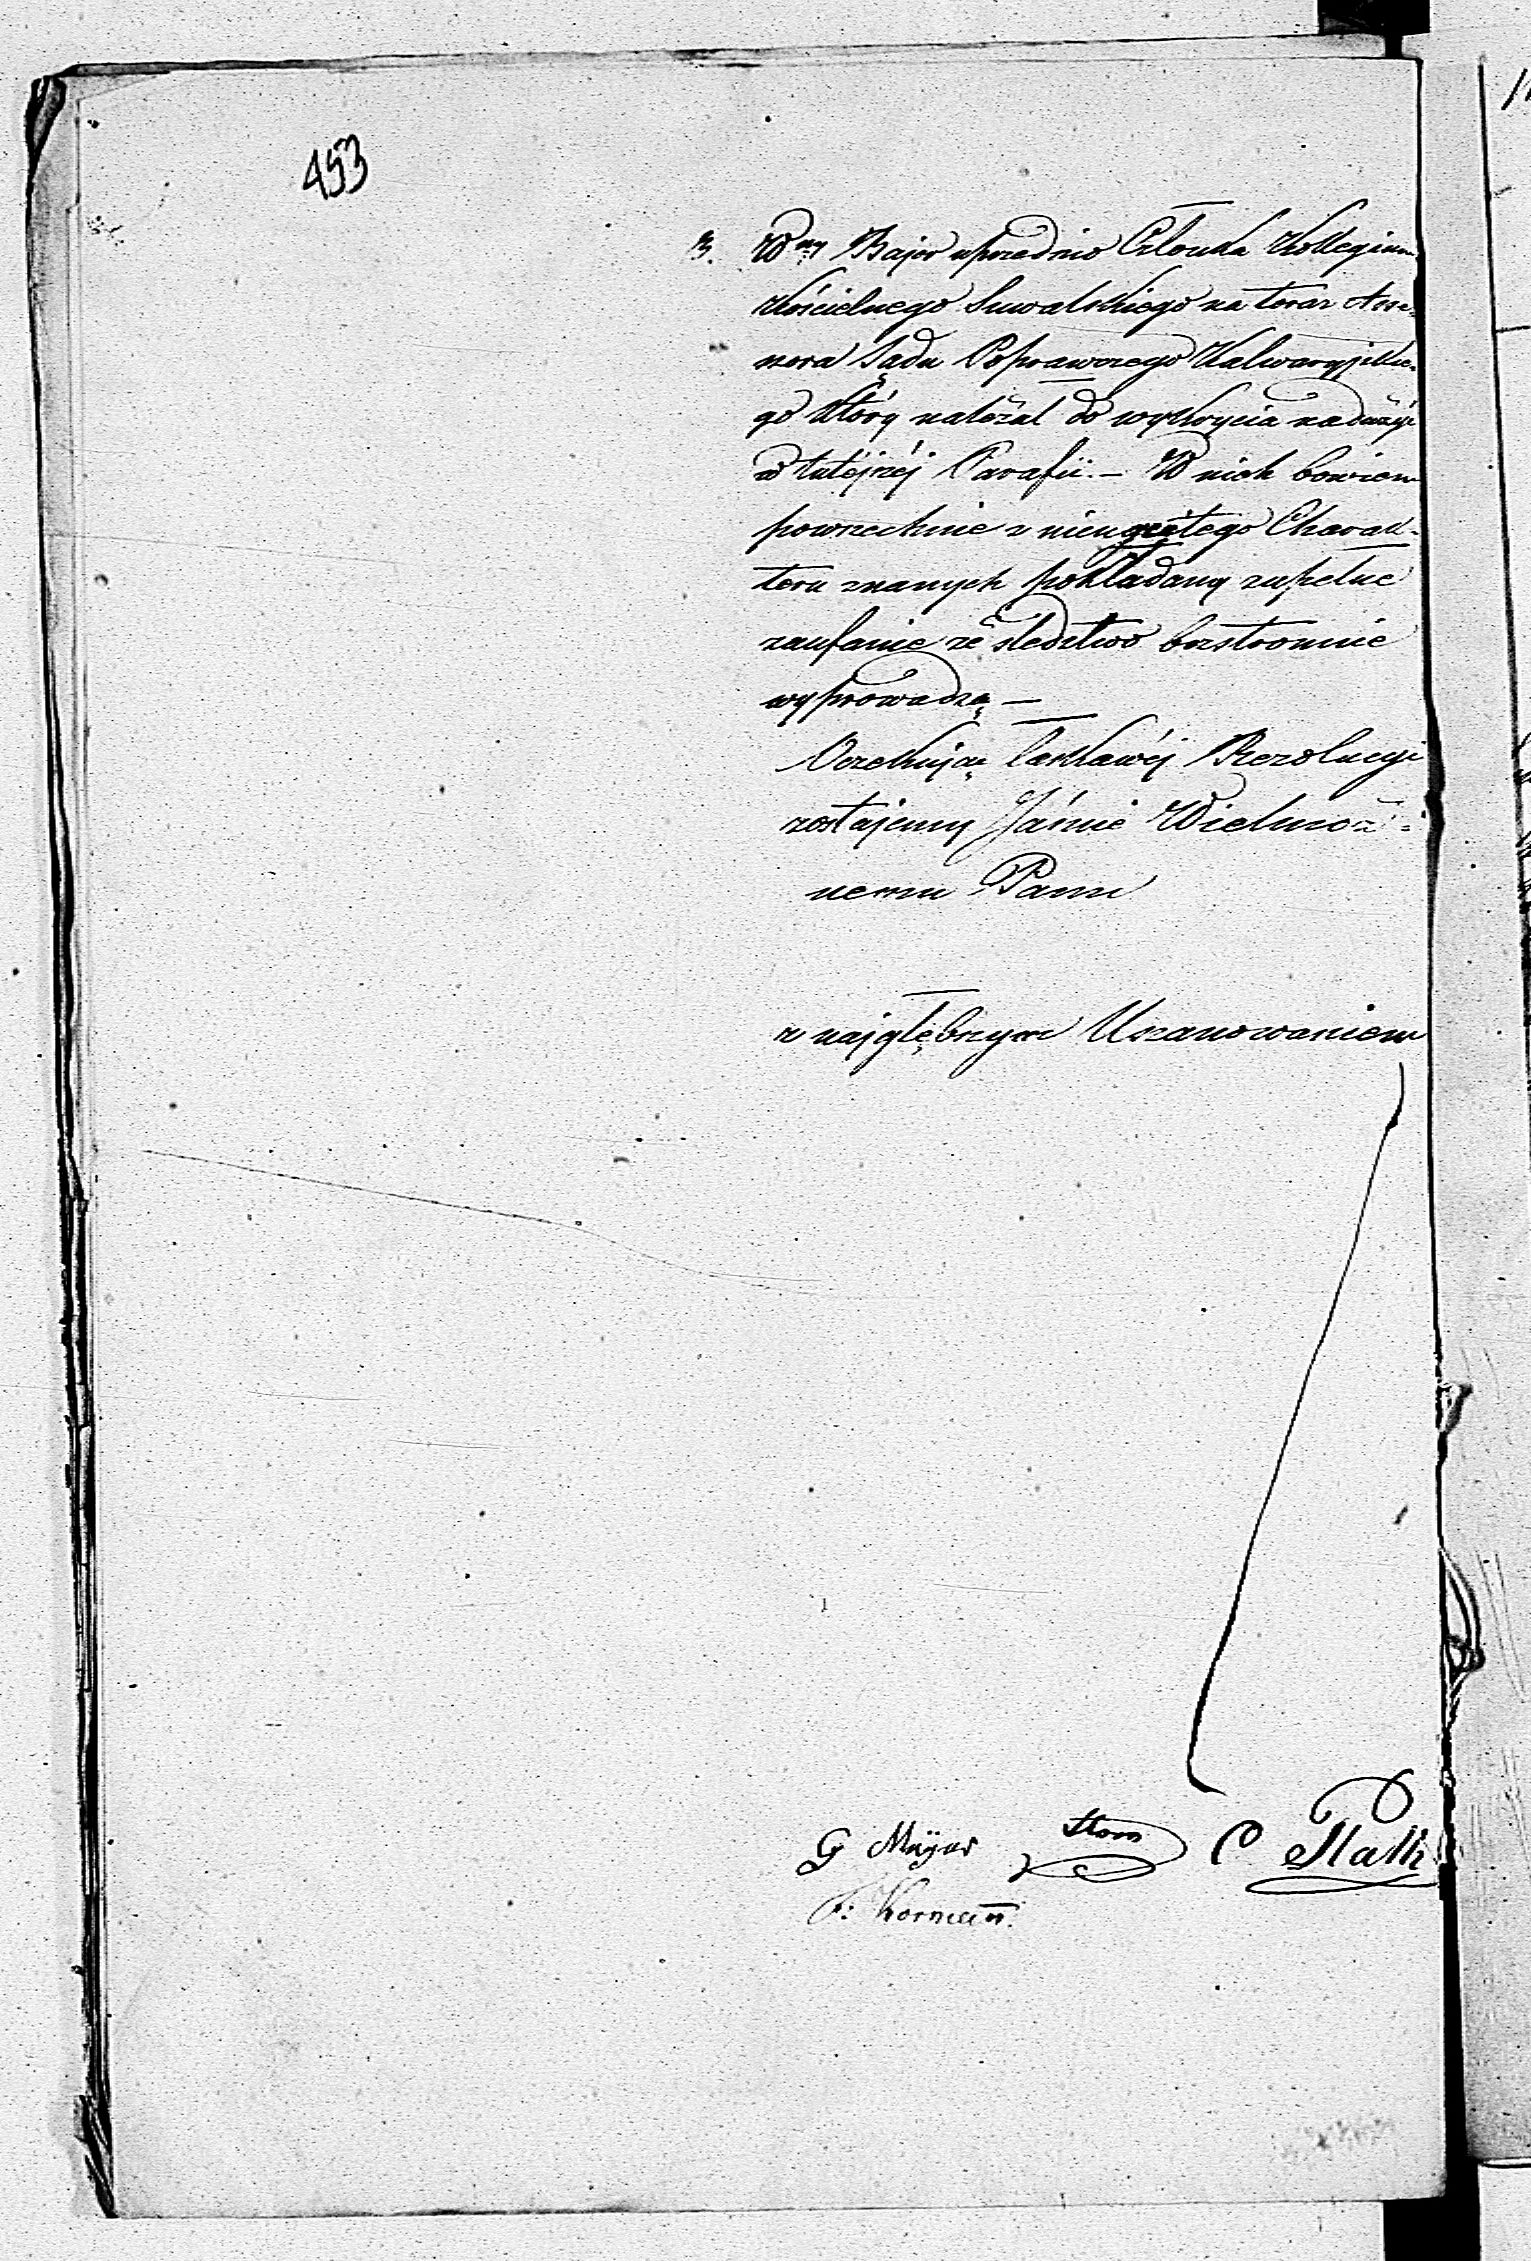 453
3. Wny Bajer uprzednio Członka Kollegium
Kościelnego Suwalskiego na teraz Asse-
szora Sądu Poprawczego Kalwaryjskie-
go który należał do wykrycia nadużyć
w tutejszéj Parafii. — W nich bowiem
powszechnie z nieugiętego Charak-
teru znanych pokładamy zupełne
zaufanie że śledztwo bezstronnie
wyprowadzą —
Oczekując łaskawéj Rezolucyi
zostajemy Jaśnie Wielmoż-
nemu Panu
z najgłębszym Uszanowaniem
G Mayer C Plath
F: Korman.